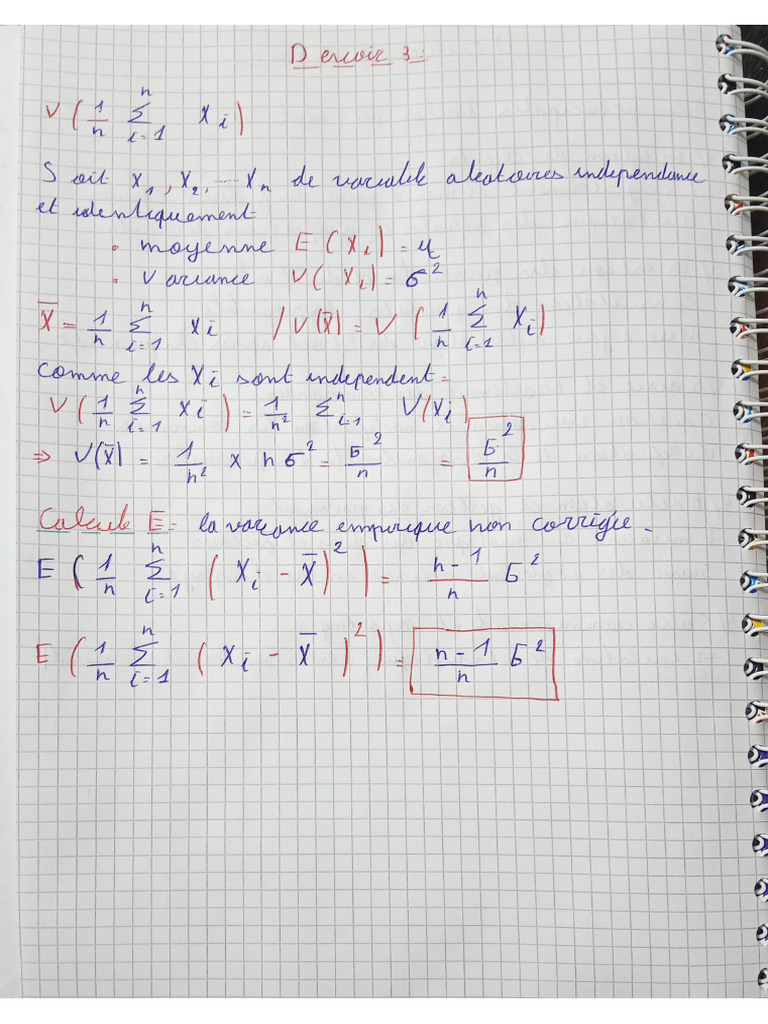 Devoir 3 :
V ( 1/n Σ_{i=1}^{n} X_i )
Soit X_1, X_2, ... X_n de variable aleatoires independance
et identiquement
• moyenne E(X_i) = μ
• Variance V(X_i) = σ²
X̄ = 1/n Σ_{i=1}^{n} X_i / V(X̄) = V ( 1/n Σ_{i=1}^{n} X_i )
Comme les X_i sont independent =
V ( 1/n Σ_{i=1}^{n} X_i ) = 1/n² Σ_{i=1}^{n} V(X_i)
⇒ V(X̄) = 1/n² × n σ² = σ²/n = σ²/n
Calcule E = la variance empirique non corrigée.
E ( 1/n Σ_{i=1}^{n} ( X_i - X̄ )² ) = n-1/n σ²
E ( 1/n Σ_{i=1}^{n} ( X_i - X̄ )² ) = n-1/n σ²